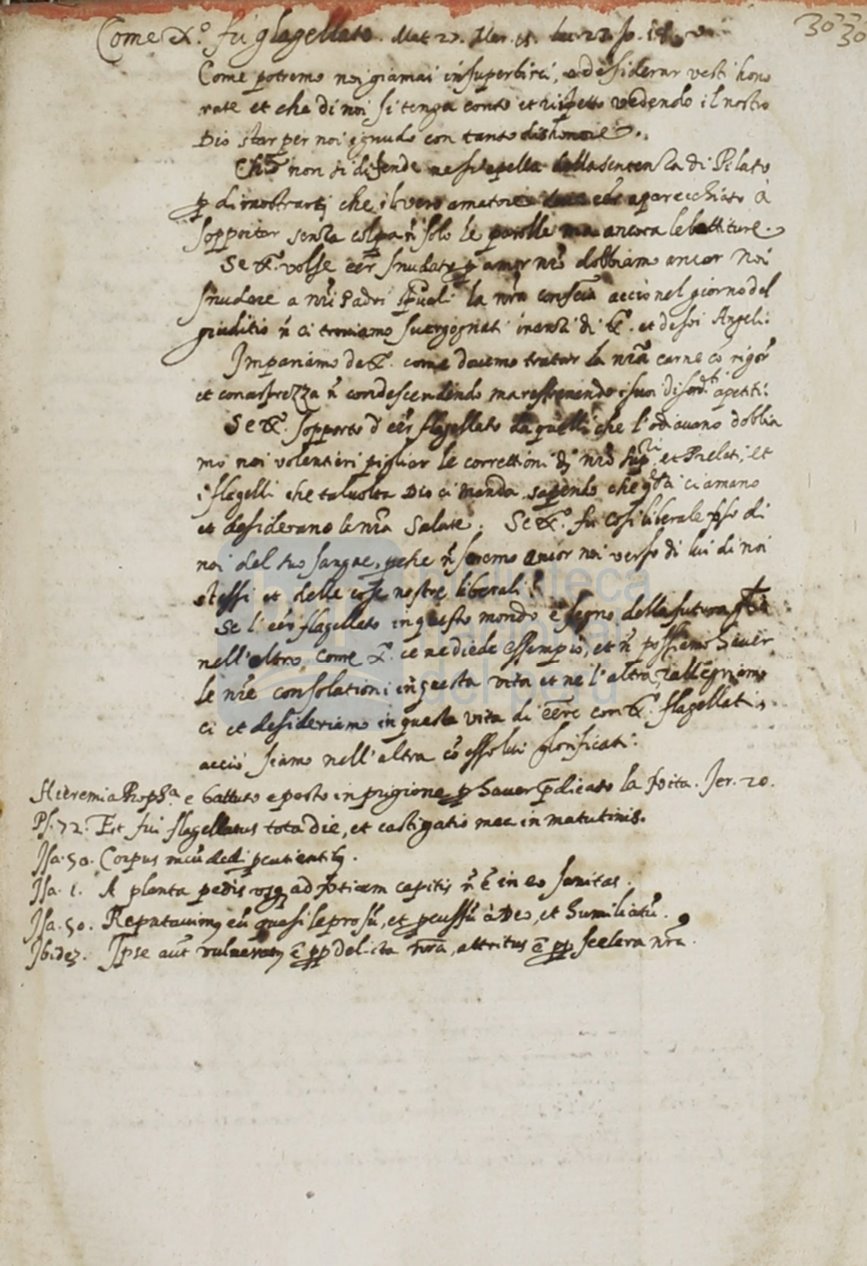 Come X.º fu flagellato. Mat 27. Mar. 15. luc. 23 Jo. 19.
30 30
Come potremo noi giamai insuperbirci, o desiderar vesti hono
rate et che di noi si tenga conto et rispetto vedendo il nostro
Dio star per noi ignudo con tanto dishonore.
non si difende ne si apella dalla sentenza di Pilato
p dimostrarci che il vero amatore deve esser aparecchiato à
sopportar senza colpa ñ solo le parolle ma ancora le battiture.
Se X.º volse eẽr snudato p amor nr̃o dobbiamo ancor noi
snudare a nr̃i Padri la nr̃a acciò nel giorno del
giuditio ñ ci troviamo suergognati inanzi di X.º et de soi Angeli.
Impariamo da X.º come dovemo tratar la nr̃a carne cõ rigor
et con asprezza ñ condescendendo ma refrenando i suoi apetiti.
Se X.º sopportò d'eẽr flagellato da quelli che l'odiavano dobbia
mo noi volentieri pigliar le correttioni de nr̃i et Prelati, et
i flagelli che talvolta Dio ci manda, sapendo che q̃sti ci amano
et desiderano la nr̃a Salute. Se X.º fu cosi liberale di
noi del suo sangue, perche ñ saremo ancor noi verso di lui di noi
stessi et delle cose nostre liberali?
Se l'eẽr flagellato in questo mondo è segno della futura
nell'altro, come X.º ce ne diede essempio, et ñ possiamo haver
le nr̃e consolationi in questa vita et ne l'altra rallegriamo
ci et desideriamo in questa vita di eẽre con X.º flagellati,
acciò siamo nell'altra cõ esso lui glorificati.
Hieremia Proph.ª e battuto e posto in prigione p haver p̃dicato la Jer. 20.
Ps. 72. Et fui flagellatus tota die, et castigatio mea in matutinis.
Isa. 50. Corpus meũ dedi pcutientibꝫ.
Isa. 1. A planta pedis usqꝫ ad verticem capitis ñ ẽ in eo sanitas.
Isa. 50. Reputavimꝫ eũ quasi leprosũ, et pcussũ à Deo, et humiliatũ.
Ibidez. Ipse aut̃ vulneratꝫ ẽ pp delicta nr̃a, attritus ẽ pp scelera nr̃a.